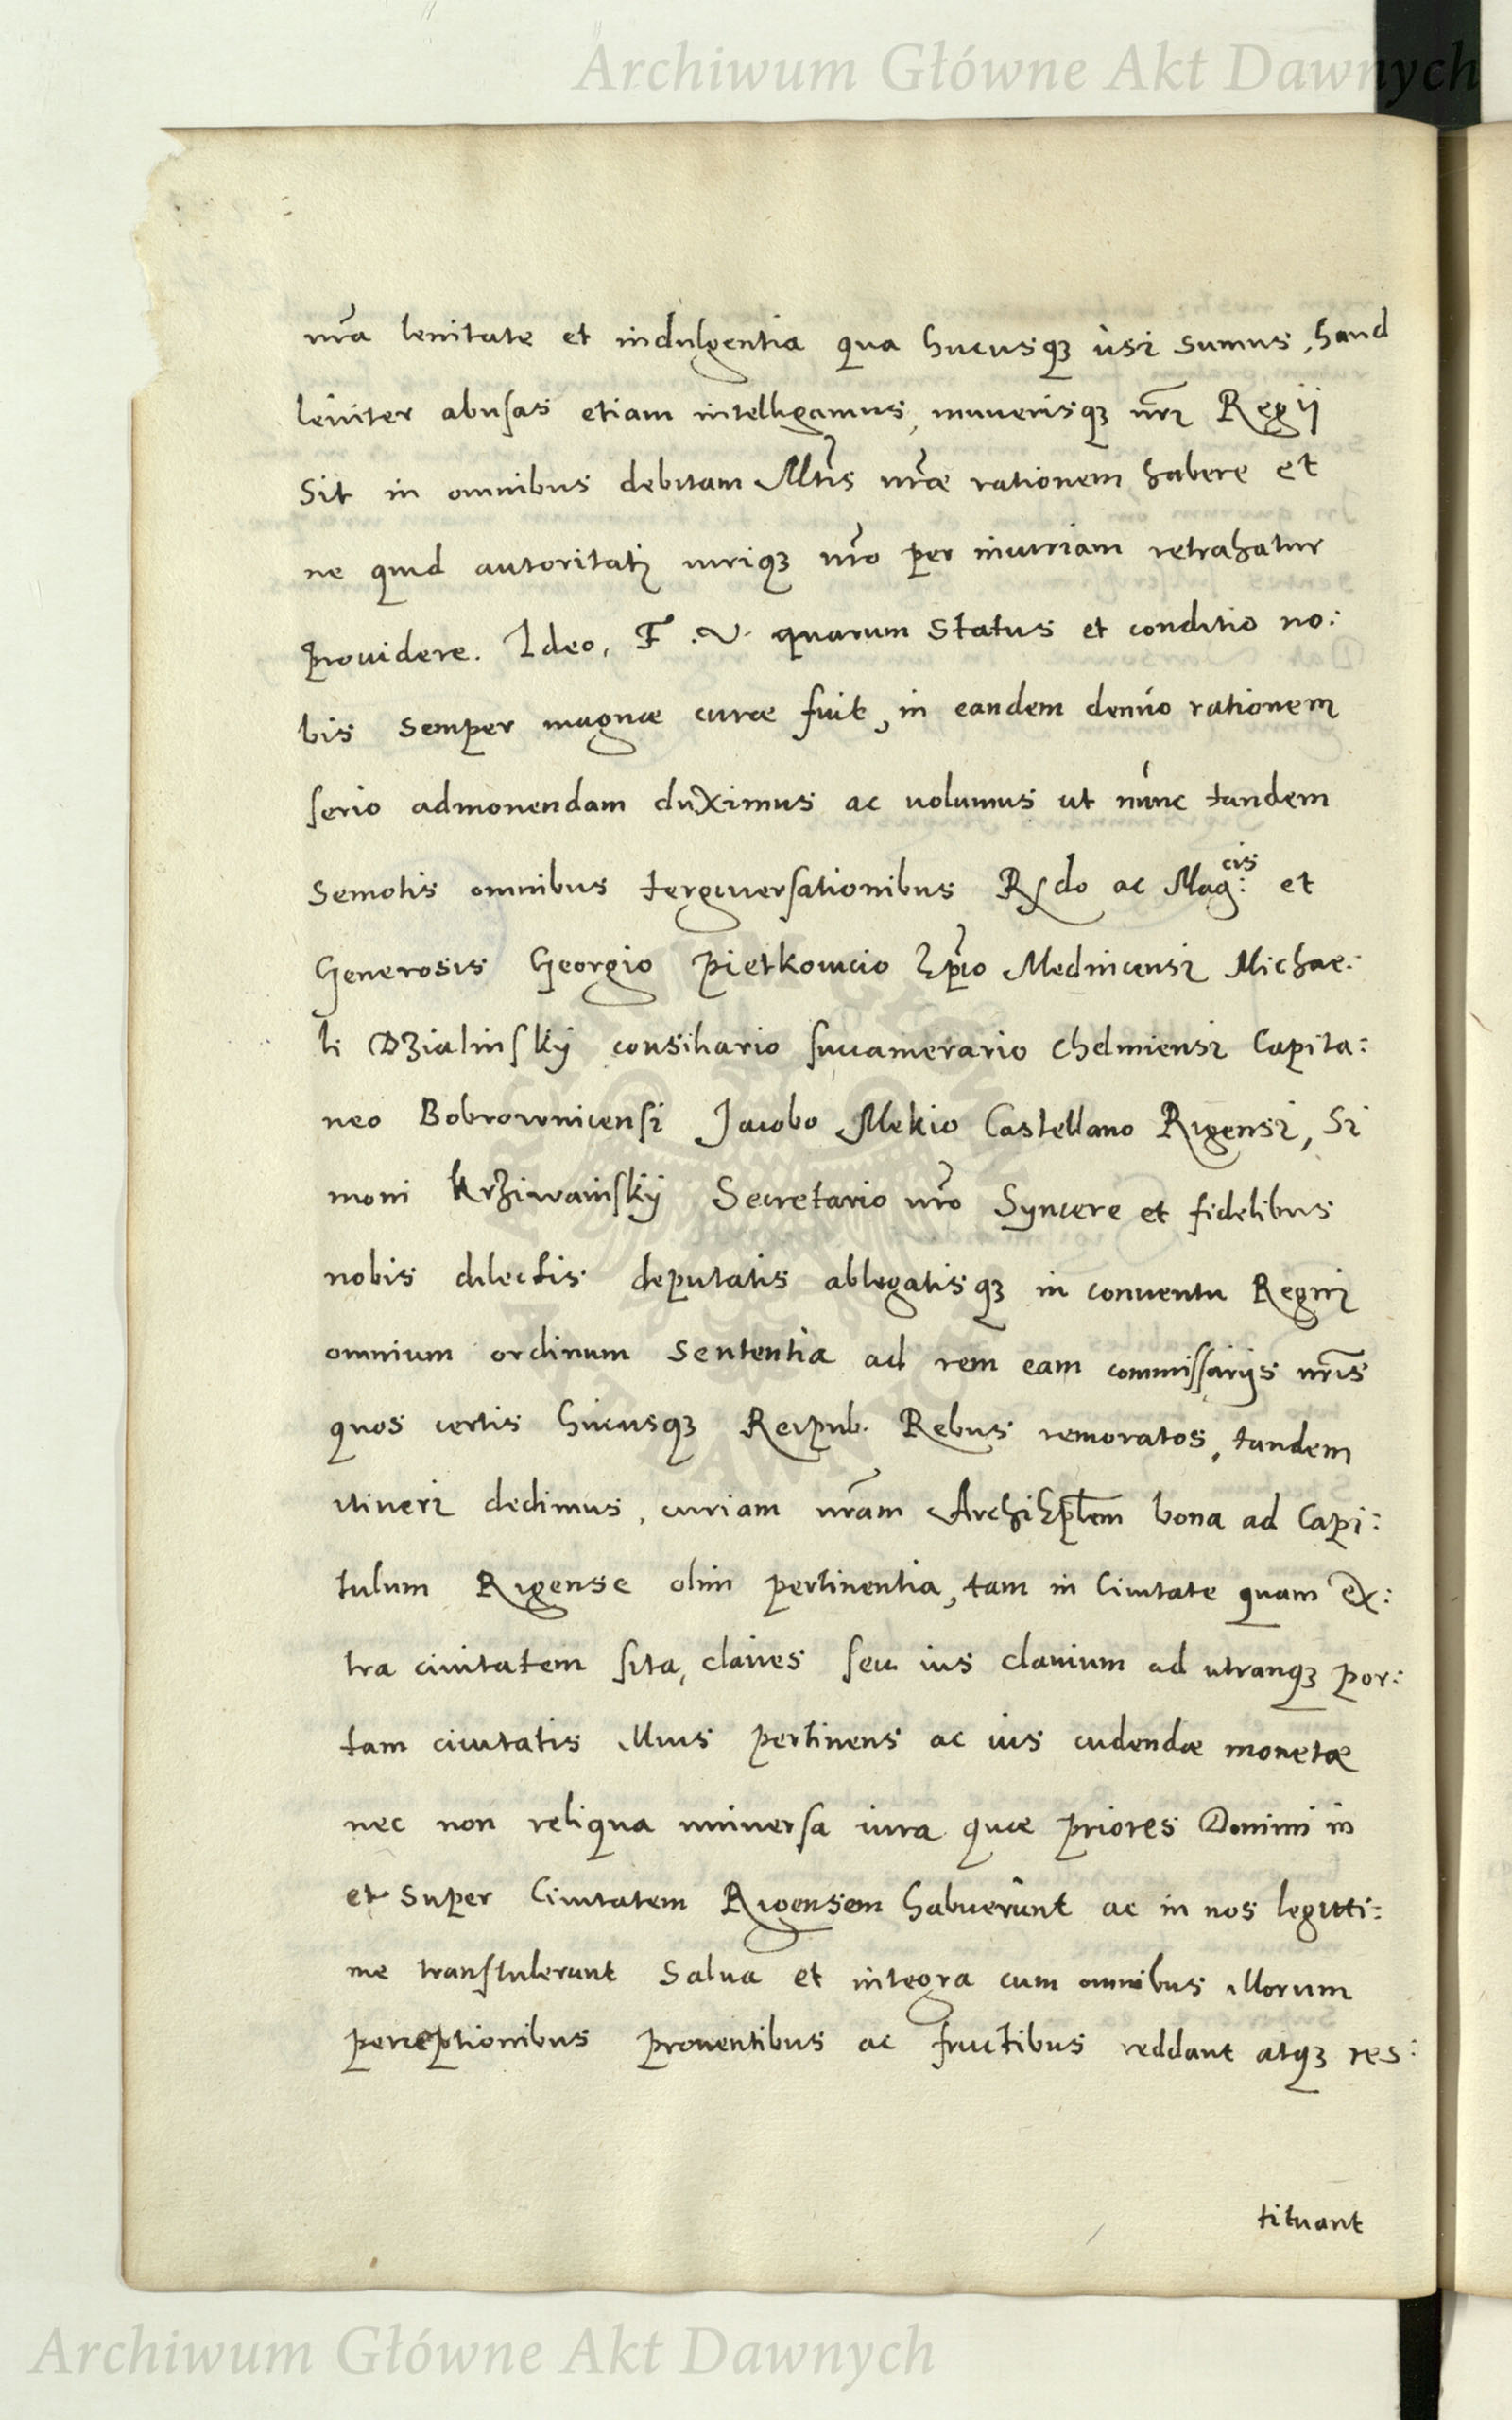 Archiwum Główne Akt Dawnych
nr̃a lenitate et indulgentia qua hucusqꝫ usi sumus, haud
leniter abusas etiam intelligamus, munerisqꝫ nr̃i Regij
Sit in omnibus debitam Mtis nr̃æ rationem habere et
ne quid autoritati iuriqꝫ nr̃o per iniuriam retrahatur
prouidere. Ideo, F. V. quarum Status et conditio no:
bis semper magnæ curæ fuit, in eandem denuo rationem
serio admonendam duximus ac uolumus ut nunc tandem
Semotis omnibus tergiuersationibus Rdo ac Mag:cis et
Generosis Georgio Pietkouicio Ep̃io Mednicensi Michae:
li Dzialinskÿ consiliario succamerario chelmiensi Capita:
neo Bobrownicensi Jacobo Mekio Castellano Rigensi, Si
moni Krziwainskÿ Secretario nr̃o Syncere et fidelibus
nobis dilectis deputatis ablegatisqꝫ in conuentu Regni
omnium ordinum Sententia ad rem eam commissarijs nr̃is
quos certis hucusqꝫ Reipub. Rebus remoratos, tandem
itineri dedimus, curiam nr̃am ArchiEpl̃em bona ad Capi:
tulum Rigense olim pertinentia, tam in Ciuitate quam ex:
tra ciuitatem sita, claues seu ius clauium ad utranqꝫ por:
tam ciuitatis illius pertinens ac ius cudendæ monetæ
nec non reliqua uniuersa iura quæ priores Domini in
et super Ciuitatem Rigensem habuerunt ac in nos legitti:
me transtulerunt Salua et integra cum omnibus illorum
perceptionibus prouentibus ac fructibus reddant atqꝫ res:
tituant
Archiwum Główne Akt Dawnych